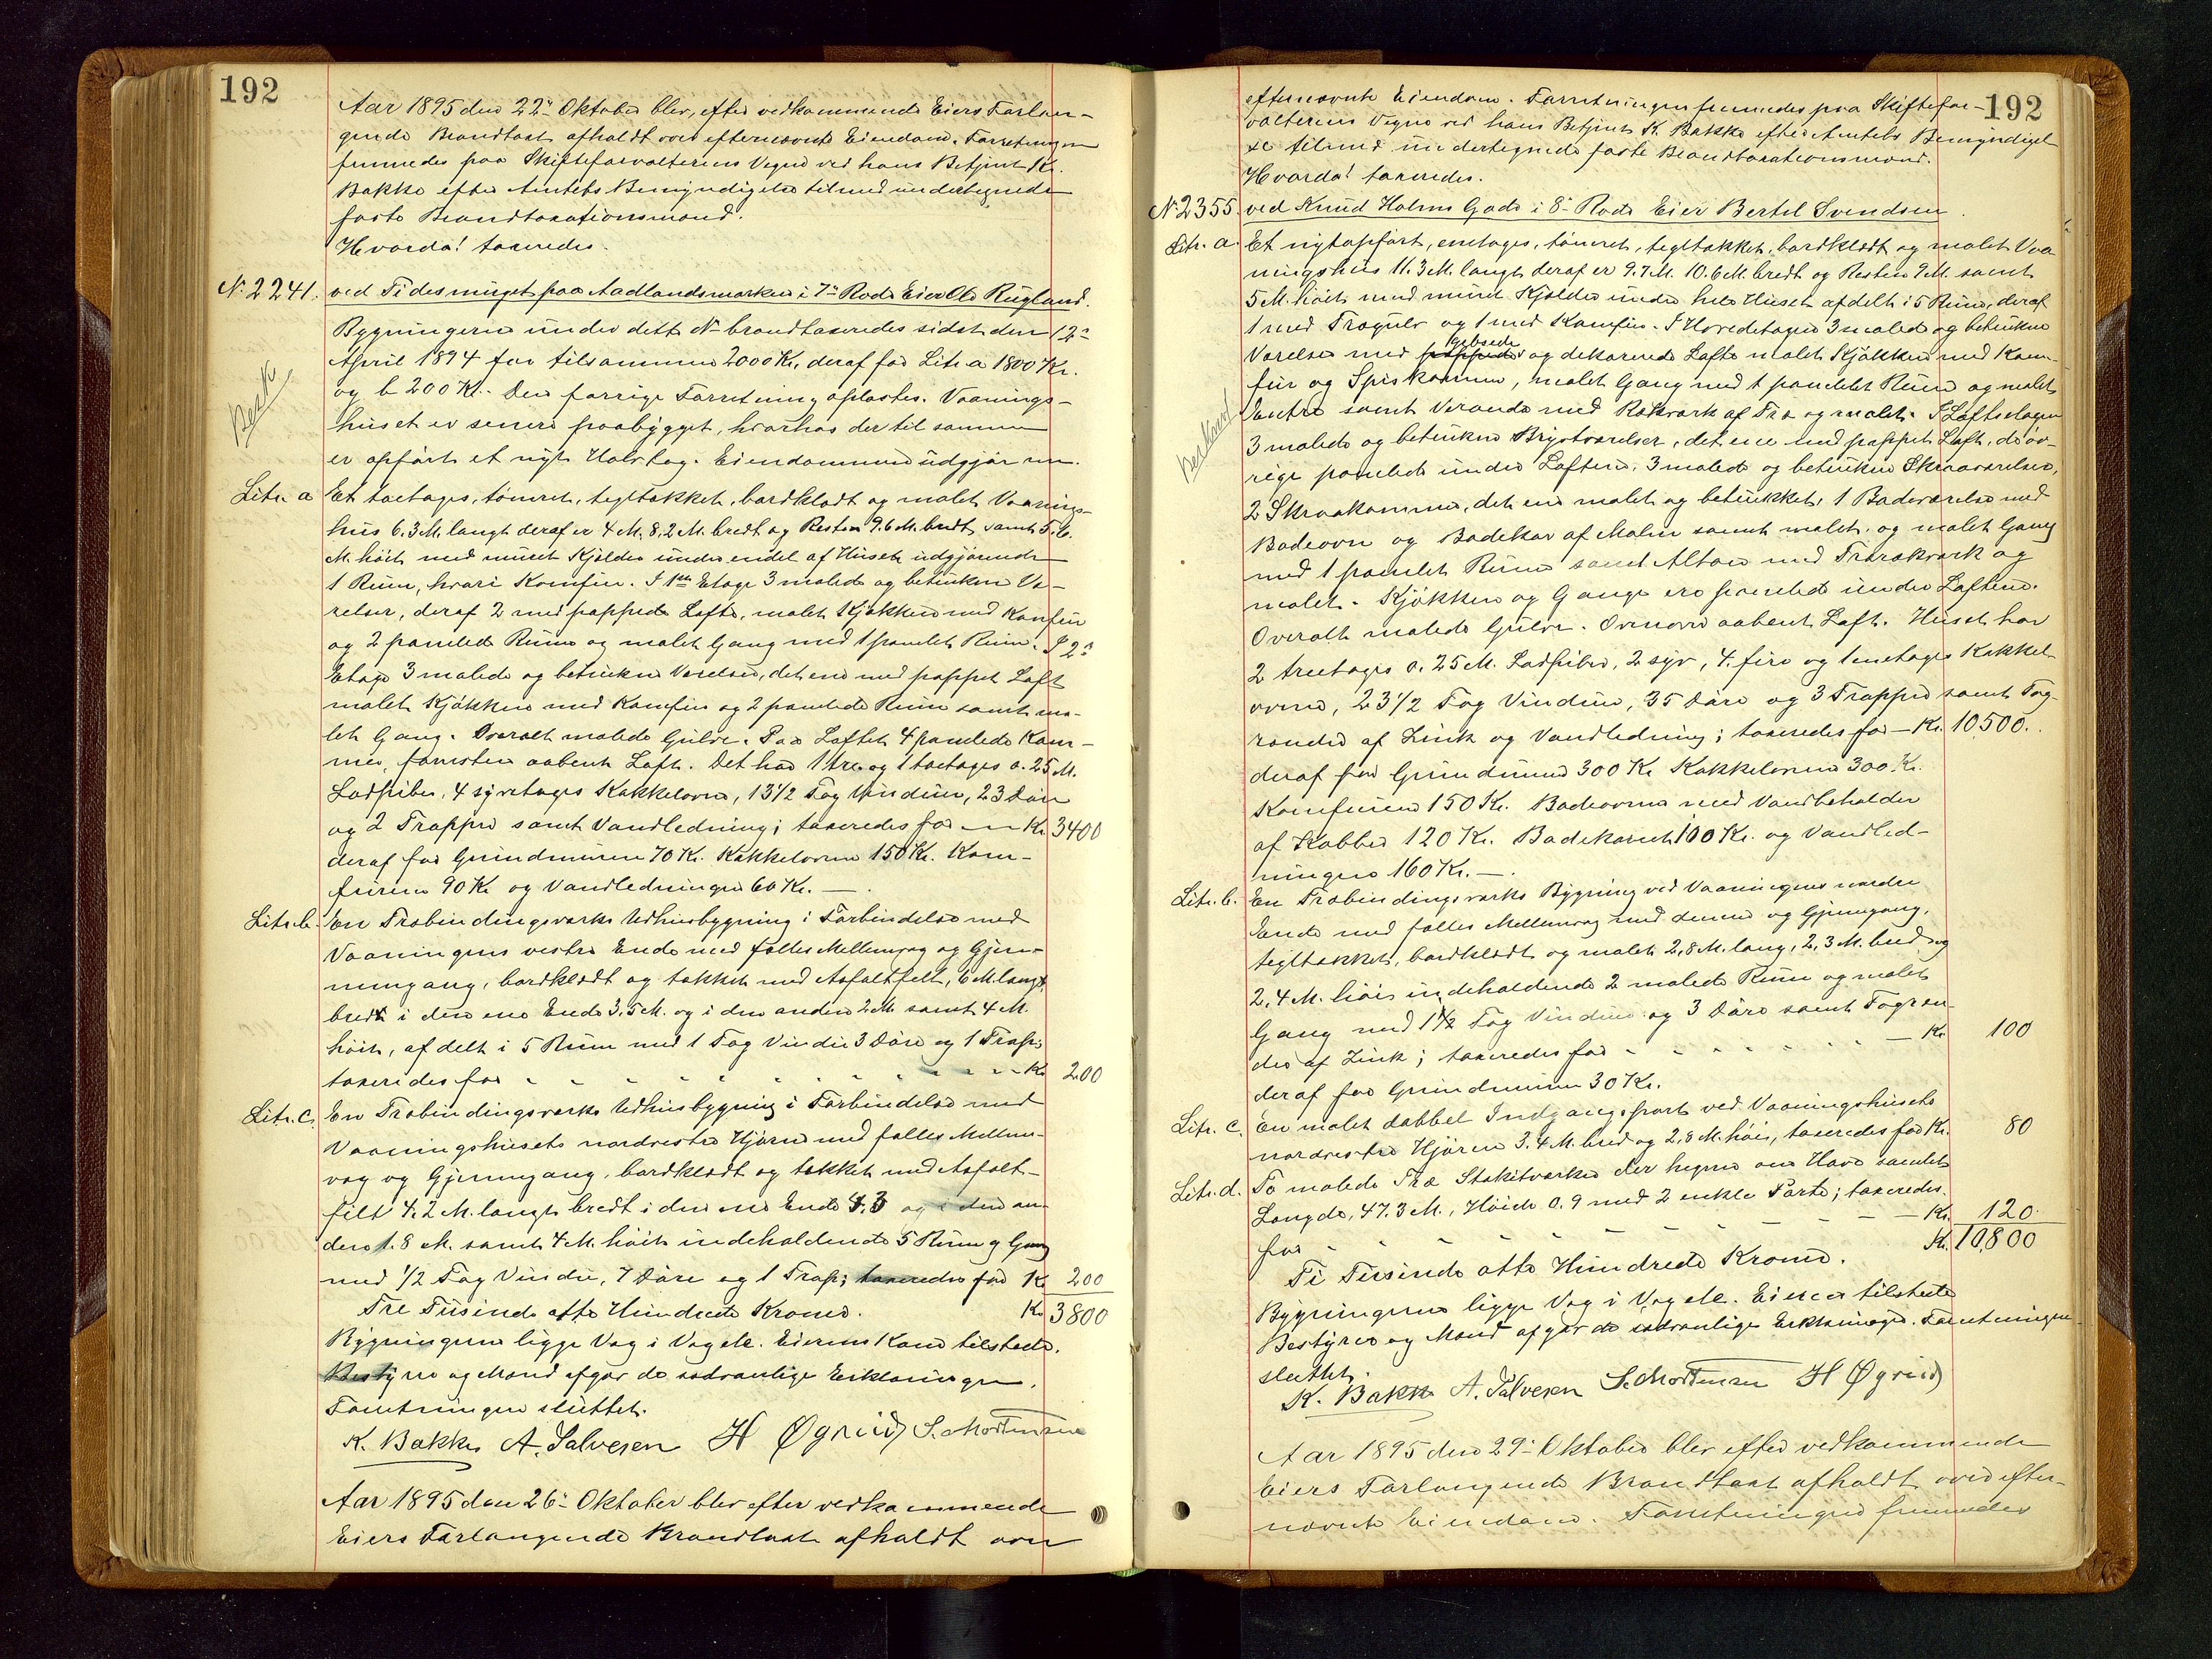 192
Aar 1895 den 22' Oktober blev, efter vedkommende Eiers Forlan-
gende Brandtaxt afholdt over efternævnte Eiendom. Forretningen
fremmedes paa Skifteforvalterens Vegne ved hans Betjent K.
Bakke efter Amtets Bemyndigelse tilmed undertegnede
faste Brandtaxationsmænd.
Hvorda! taxeredes.
No. 2241. ved Tidesmuget paa Aadlandsmarken i 7' Rode Eier Ole Rugland.
Bygningerne under dette No brandtaxeredes sidst den 12'
April 1894 for tilsammen 2000 Kr, deraf for Litr a 1800 Kr.
og b 200 Kr. Den forrige Forretning oplæstes. Vaanings-
huset er senere paabygget, hvorhos der til samme
er opført et nyt Halvtag. Eiendommen udgjør nu.
Litr. a Et toetages, tømret, tegltækket, bordklædt og malet Vaanings-
hus 6.3 M. langt deraf er 4 M. 8,2 M. bredt og Resten 9.6 M. bredt, samt 5.6.
M. høit med muret Kjælder under endel af Huset udgjørende
1 Rum, hvori Komfur. I 1ste Etage 3 malede og betrukne Væ-
relser, deraf 2 med pappede Lofte, malet Kjøkken med Komfur
og 2 panelede Rum og malet Gang med 1 panelet Rum. I 2'
Etage 3 malede og betrukne Værelser, det ene med pappet Loft
malet Kjøkken med Komfur og 2 panelede Rum samt ma-
let Gang. Overalt malede Gulve. Paa Loftet 4 panelede Kam-
mer, forresten aabent Loft. Det har 1 tre og 1 toetages a. 25 M.
Ladpiber, 4 syvetages Kakkelovne, 13 1/2 Fag Vinduer, 23 Døre
og 2 Trapper samt Vandledning; taxeredes for — Kr. 3400
deraf for Grundmuren 70 Kr. Kakkelovne 150 Kr. Kom-
furene 90 Kr. og Vandledningen 60 Kr. —
Litr. b. En Træbindingsværks Udhusbygning i Forbindelse med
Vaaningens vestre Ende med fælles Mellemvæg og Gjen-
nemgang, bordklædt og tækket med Asfaltfelt, 6 M. langt,
bredt i den ene Ende 3,5 M. og i den anden 2 M. samt 4 M.
høit, afdelt i 5 Rum med 1 Fag Vindu 3 Døre og 1 Trap;
taxeredes for - - - - - Kr. 200
Litr. c. En Træbindingsværks Udhusbygning i Forbindelse med
Vaaningshusets nordvestre Hjørne med fælles Mellem-
væg og Gjennemgang, bordklædt og tækket med Asfalt-
filt 4,2 M. langt bredt i den ene Ende 3.3 og i den an-
den 1.8 M. samt 4 M. høit indeholdende 5 Rum og Gang
med 1/2 Fag Vindu, 7 Døre og 1 Trap; taxeredes for Kr. 200
Tre Tusinde otte Hundrede Kroner. Kr. 3800
Bygningerne ligge Væg i Væg etc. Eierens Kone tilstede.
Bestyrer og Mænd afgav de sædvanlige Erklæringer.
Forretningen sluttet.
K. Bakke A. Salvesen H Øgreid S. Mortensen
Aar 1895 den 26' Oktober blev efter vedkommende
Eiers Forlangende Brandtaxt afholdt over
192
efternævnte Eiendom. Forretningen fremmedes paa Skiftefor-
valterens Vegne ved hans Betjent K. Bakke efter Amtets Bemyndigel-
se tilmed undertegnede faste Brandtaxationsmænd.
Hvorda! taxeredes.
No. 2355. ved Knud Holms Gade i 8' Rode Eier Bertel Svendsen
Litr. a. Et nytopført, enetages, tømret, tegltækket, bordklædt og malet Vaa-
ningshus 11.3 M. langt deraf er 9.7 M. 10.6 M. bredt og Resten 9 M. samt
5 M. høit med muret Kjælder under hele Huset afdelt i 5 Rum, deraf
1 med Trægulv og 1 med Komfur. I Hovedetagen 3 malede og betrukne
Værelser med gibsede og dekorerede Lofte malet Kjøkken med Kom-
fur og Spiskammer, malet Gang med 1 panelet Rum og malet
Entre samt Veranda med Rækværk af Træ og malet. I Loftsetagen
3 malede og betrukne Brystværelser, det ene med pappet Loft, de øv-
rige panelede under Loftene. 3 malede og betrukne Skraaværelser,
2 Skraakammer, det ene malet og betrukket, 1 Badeværelse med
Badeovn og Badekar af Malm samt malet. og malet Gang
med 1 panelet Rum samt Altan med Trærækværk og
malet. Kjøkken og Gange ere panelede under Loftene.
Overalt malede Gulve. Ovenover aabent Loft. Huset har
2 treetages a. 25 M. Ladpiber, 2 syv, 4. fire og 1 enetages Kakkel-
ovne, 23 1/2 Fag Vinduer, 35 Døre og 3 Trapper samt Tag-
render af Zink og Vandledning; taxeredes for — Kr. 10500.
deraf for Grundmuren 300 Kr. Kakkelovne 300 Kr.
Komfurene 150 Kr. Badeovnen med Vandbeholder
af Kobber 120 Kr. Badekarret 100 Kr. og Vandled-
ningen 160 Kr. —
Litr. b. En Træbindingsværks Bygning ved Vaaningens nordre
Ende med fælles Mellemvæg med denne og Gjennemgang,
tegltækket, bordklædt og malet 2,8 M. lang, 2,3 M. bred og
2,4 M. høi indeholdende 2 malede Rum og malet
Gang med 1 1/2 Fag Vinduer og 3 Døre samt Tagren-
der af Zink; taxeredes for - - - - Kr. 100
deraf for Grundmuren 30 Kr.
Litr. c. En malet dobbel Indgangsport ved Vaaningshusets
nordvestre Hjørne 3.4 M. bred og 2,8 M. høi, taxeredes for Kr. 80
Litr. d. To malede Træ Stakitværker der hegner om Have samlet
Længde, 47.3 M., Høide 0.9 med 2 enkle Porte; taxeredes
for - - - - - - Kr. 120.
Ti Tusinde otte Hundrede Kroner. Kr. 10,800
Bygningerne ligge Væg i Væg etc. Eieren tilstede
Bestyrer og Mænd afgav de sædvanlige Erklæringer. Forretningen
sluttet.
K. Bakke A. Salvesen S. Mortensen H Øgreid
Aar 1895 den 29' Oktober blev efter vedkommende
Eiers Forlangende Brandtaxt afholdt over efter-
nævnte Eiendom. Forretningen fremmedes